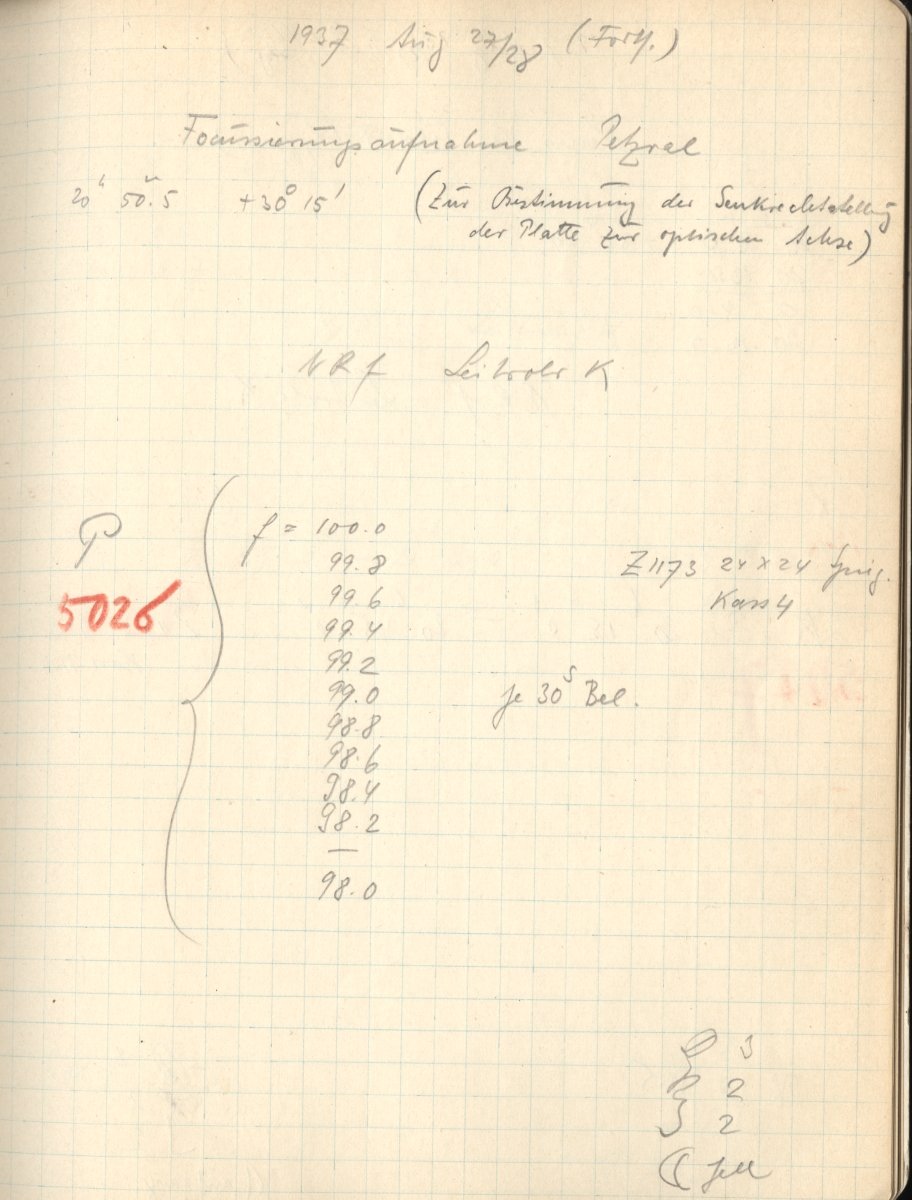 1937 Aug 27/28 (Forts.)
Focussierungsaufnahme Petzval
20h 50m.5 +30° 15' (Zur Bestimmung der Senkrechtstellung
der Platte zur optischen Achse)
Leitrohr K
P f = 100.0
99.8 Z 1173 24 x 24
5026 99.6 Kass 4
99.4
99.2
99.0 je 30s Bel.
98.8
98.6
98.4
98.2
—
98.0
3
2
2
hell